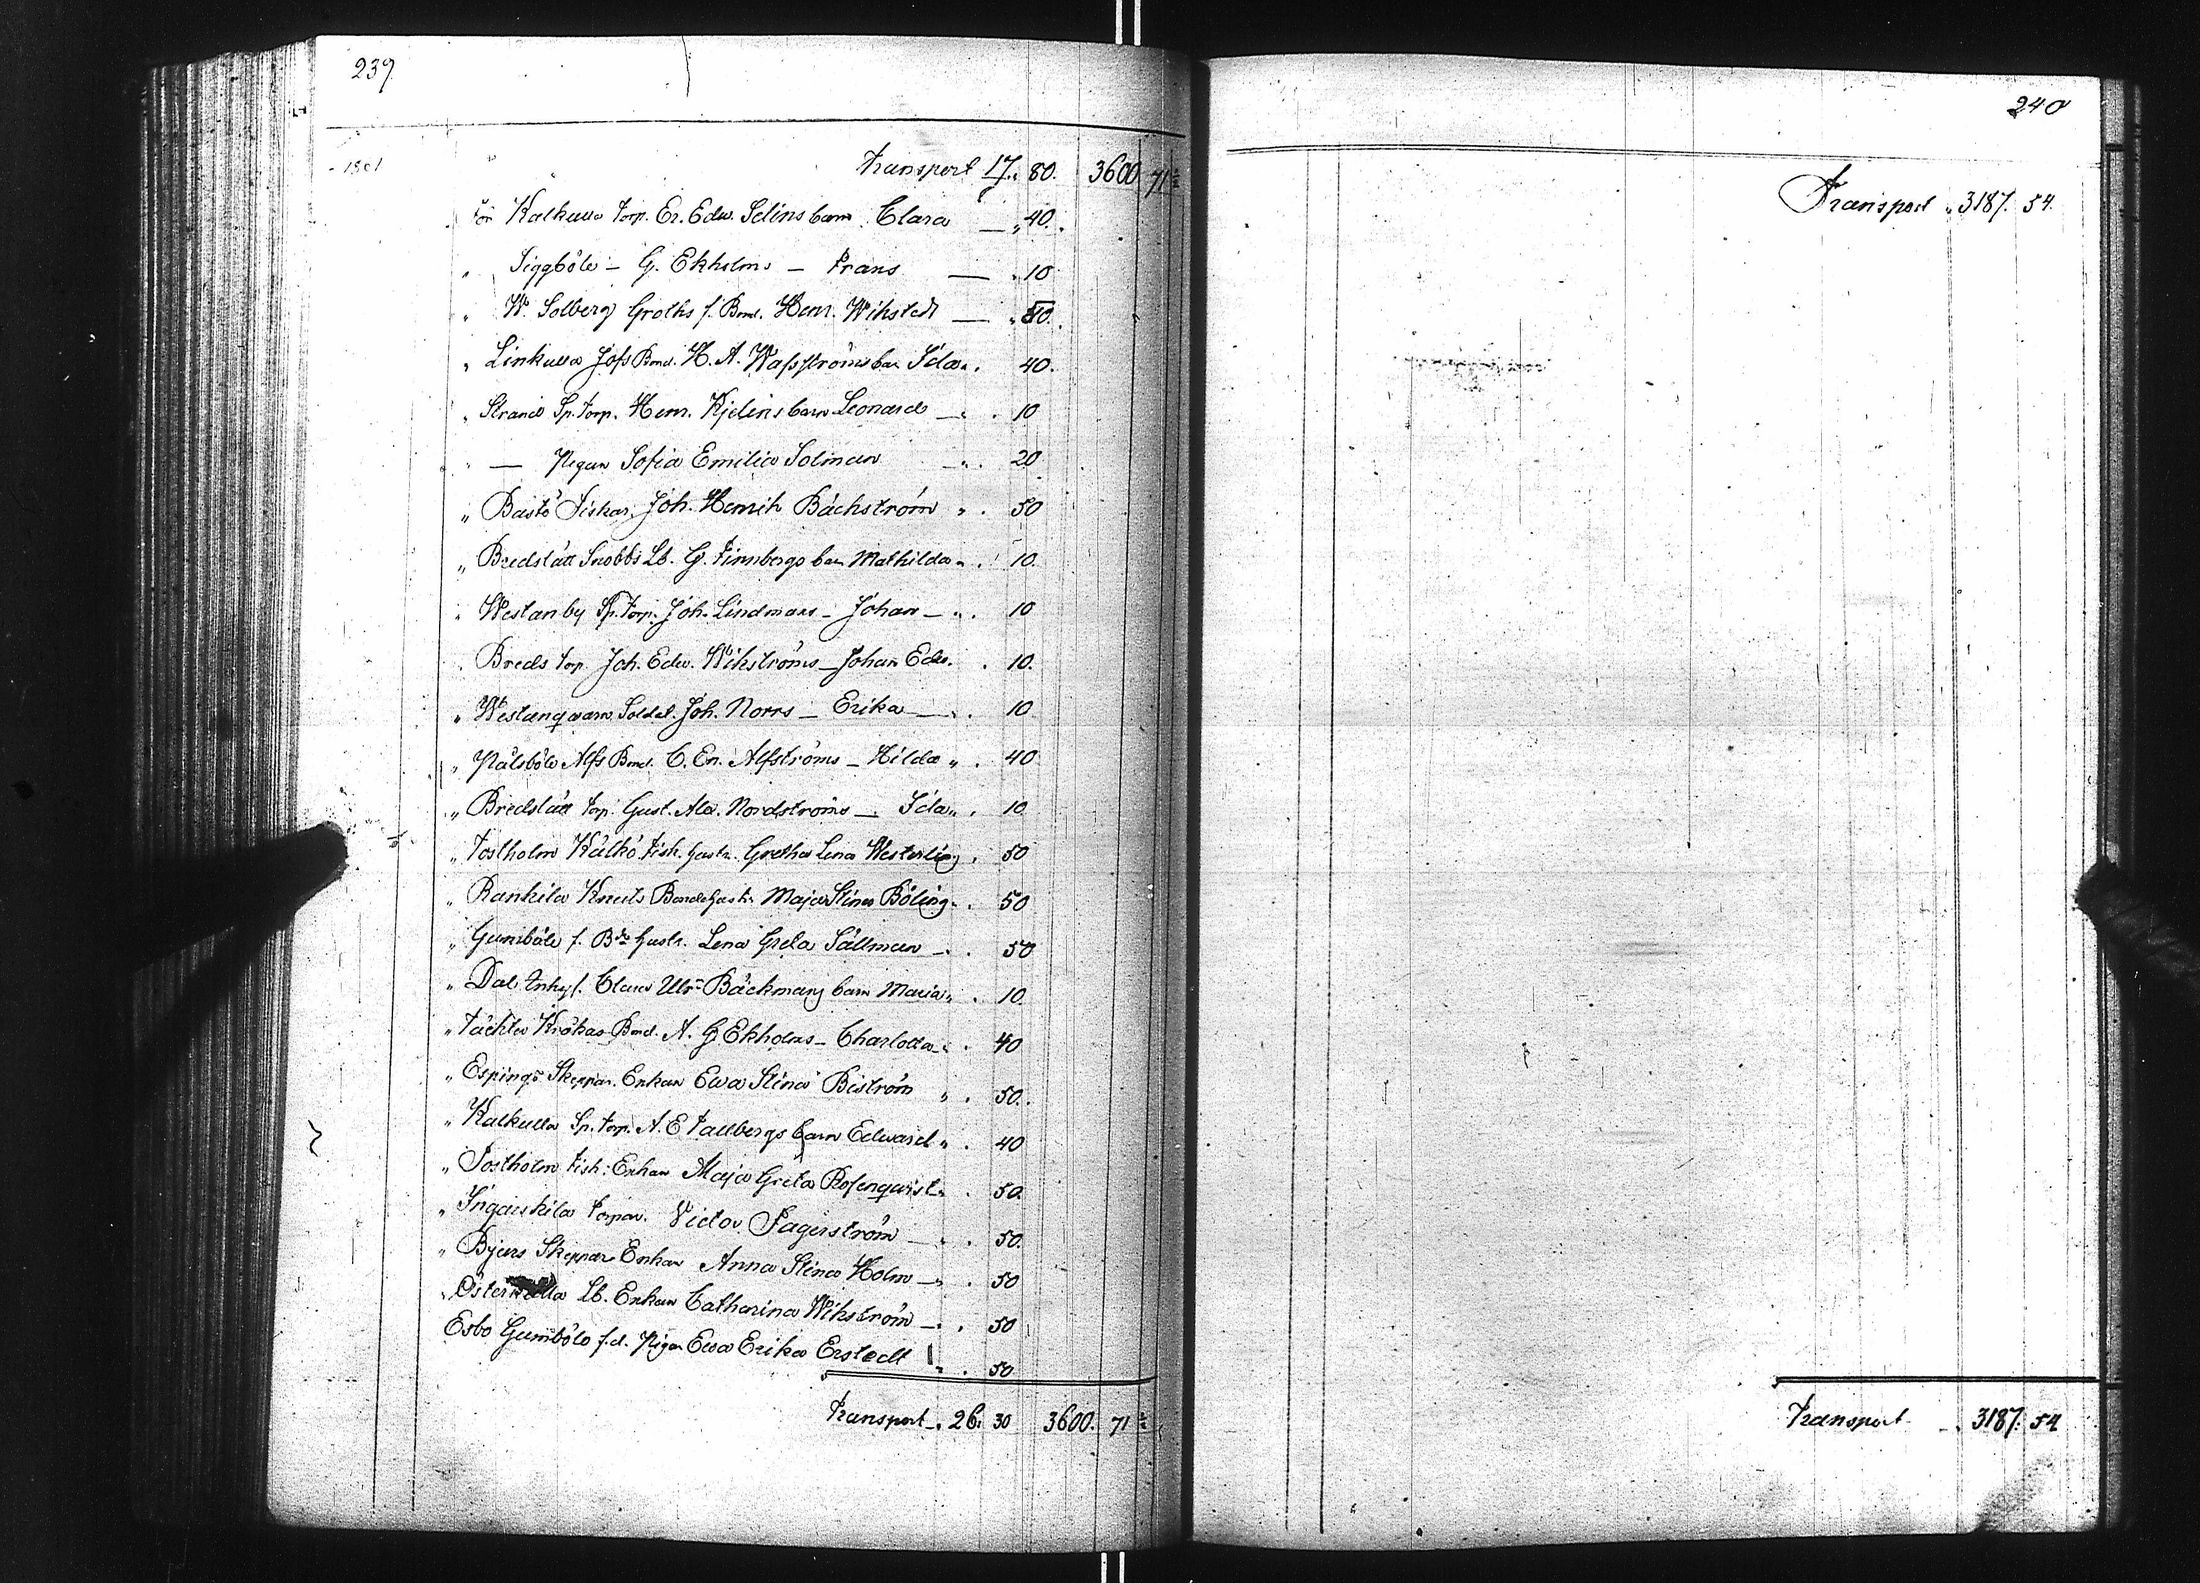 239.
1861
Transport 17. 80. 3600 71
för Kalkulla Torp. Er. Edw. Selins barn Clara — „ 40.
„ Siggböle – G. Ekholms – Frans — „ 10
„ W. Solberg Groths f. Bond. Henr. Wikstedt — „ 50.
„ Linkulla Jofs Bond. H. A. Wafsströms barn Ida „ 40.
„ Strand Sp. torp. Henr. Kjelins barn Leonard — „ 10
„ — Pigan Sofia Emilia Solman — „ 20
„ Bastö Fiskar. Joh. Henrik Bäckström „ 50
„ Bredslätt Snobbs Lb. G. Finnbergs barn Mathilda „ 10.
„ Westanby Sp. Torp. Joh. Lindmans – Johan – „ 10
„ Breds torp. Joh. Edw. Wikströms – Johan Edw. „ 10.
„ Westanqvarn Soldat. Joh. Norrs – Erika — „ 10
„ Pålsböle Alfs Bond. C. Er. Alfströms – Hilda „ 40
„ Bredslätt torp. Gust. Ad. Nordströms – Ida „ 10
„ Tostholm Kälkö Fisk. hustr. Gretha Lena Westerling „ 50
„ Rankila Knuts Bondehustr. Maja Stina Böling „ 50
„ Gumböle f. Bde hustr. Lena Greta Sällman – „ 50
„ Dal Inhys. Clara Ulr. Bäckmans barn Maria „ 10.
„ Täckter Krökas Bond. A. G. Ekholms – Charlotta „ 40
„ Espingö Skeppar. Enkan Ewa Stina Biström „ 50.
„ Kalkulla Sp. torp. A. E Tallbergs barn Edward „ 40
„ Tostholm Fisk: Enkan Maja Greta Rosenqvist „ 50.
„ Ingarskila Torpar. Victor Fagerström — „ 50.
„ Bjers Skeppar Enkan Anna Stina Holm — „ 50
„ Lb. Enkan Catharina Wikström — „ 50
Esbo Gumböle f.d. Pigan Ewa Erika Erstedt „ 50
Transport „ 26. 30 3600. 71
240
Transport „ 3187. 54.
Transport „ 3187. 54